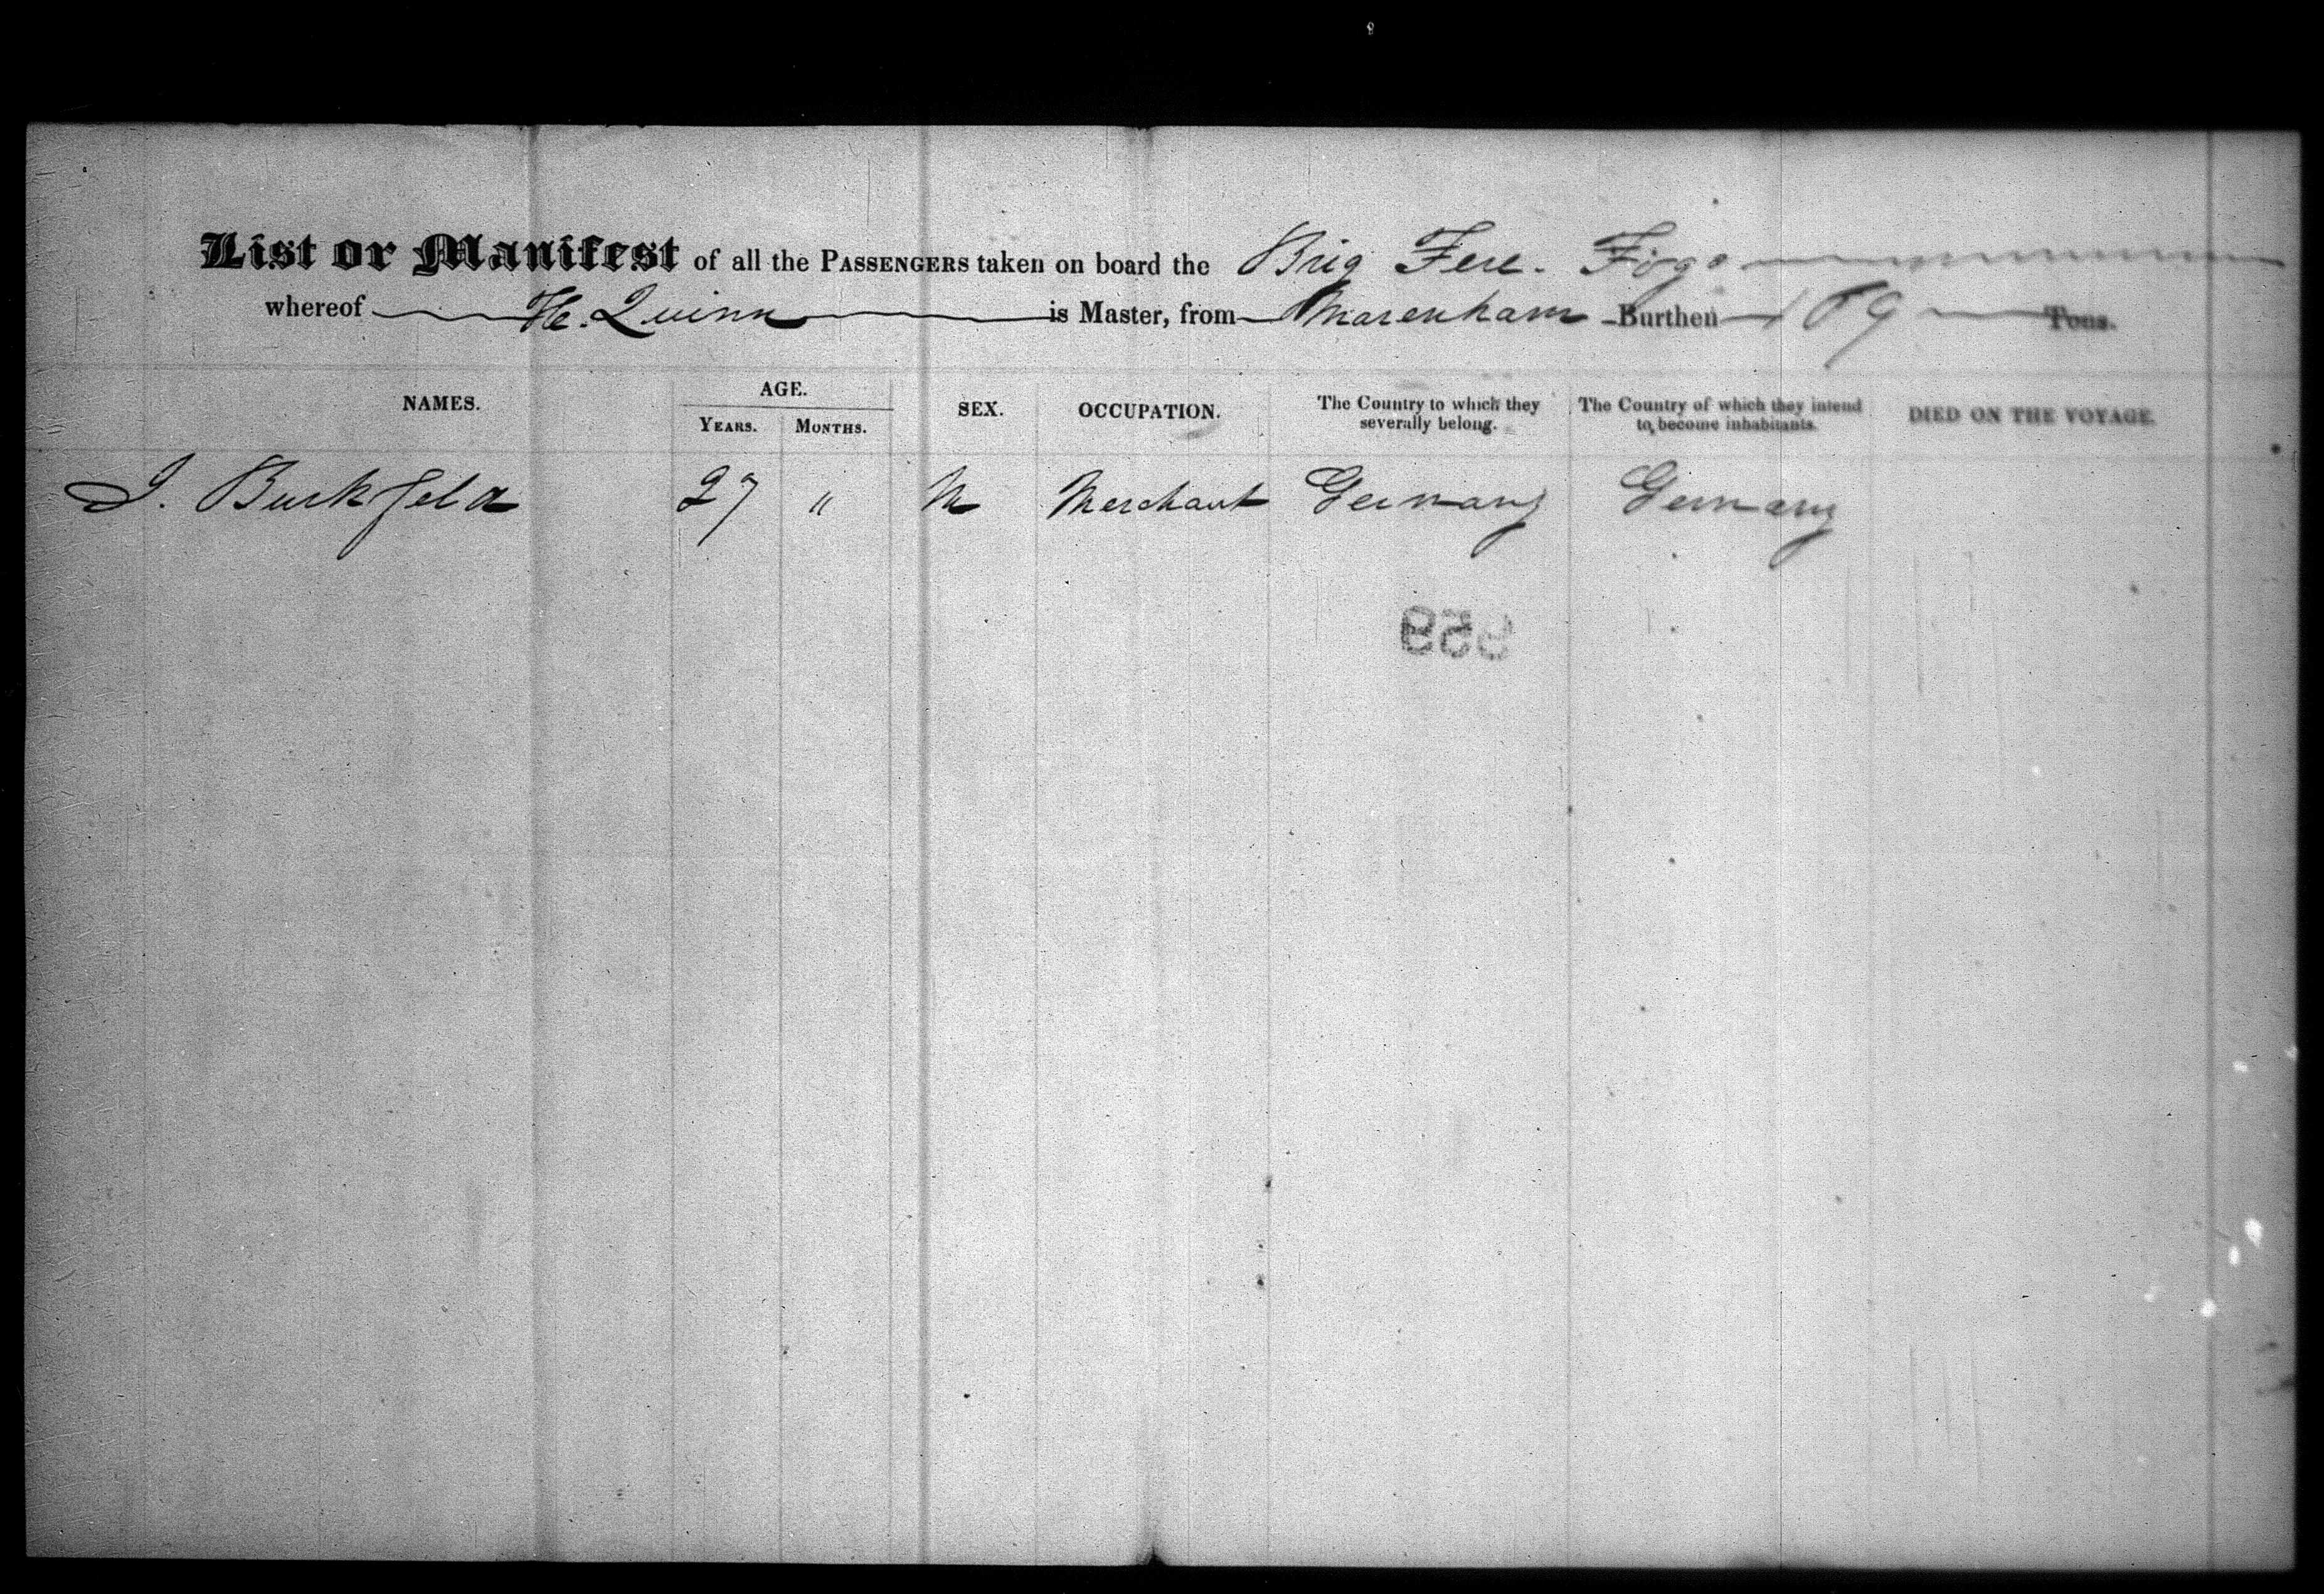 List or Manifest of all the PASSENGERS taken on board the Brig Fere. Fogo
whereof H. Quinn is Master, from Marenham Burthen 169 Tons.
NAMES. AGE. SEX. OCCUPATION. The Country to which they severally belong. The Country of which they intend to become inhabitants. DIED ON THE VOYAGE.
YEARS. MONTHS.
J. Burkfeld 27 " M Merchant Germany Germany
959